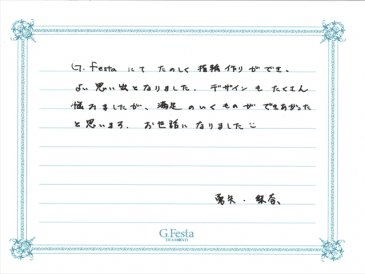 G.Festa にて たのしく 指輪 作りができ、
よい思い出となりました。デザインも たくさん
悩みましたが、満足 のいくものができあがった
と思います。お世話になりました
勇矢・梨杏
G.Festa